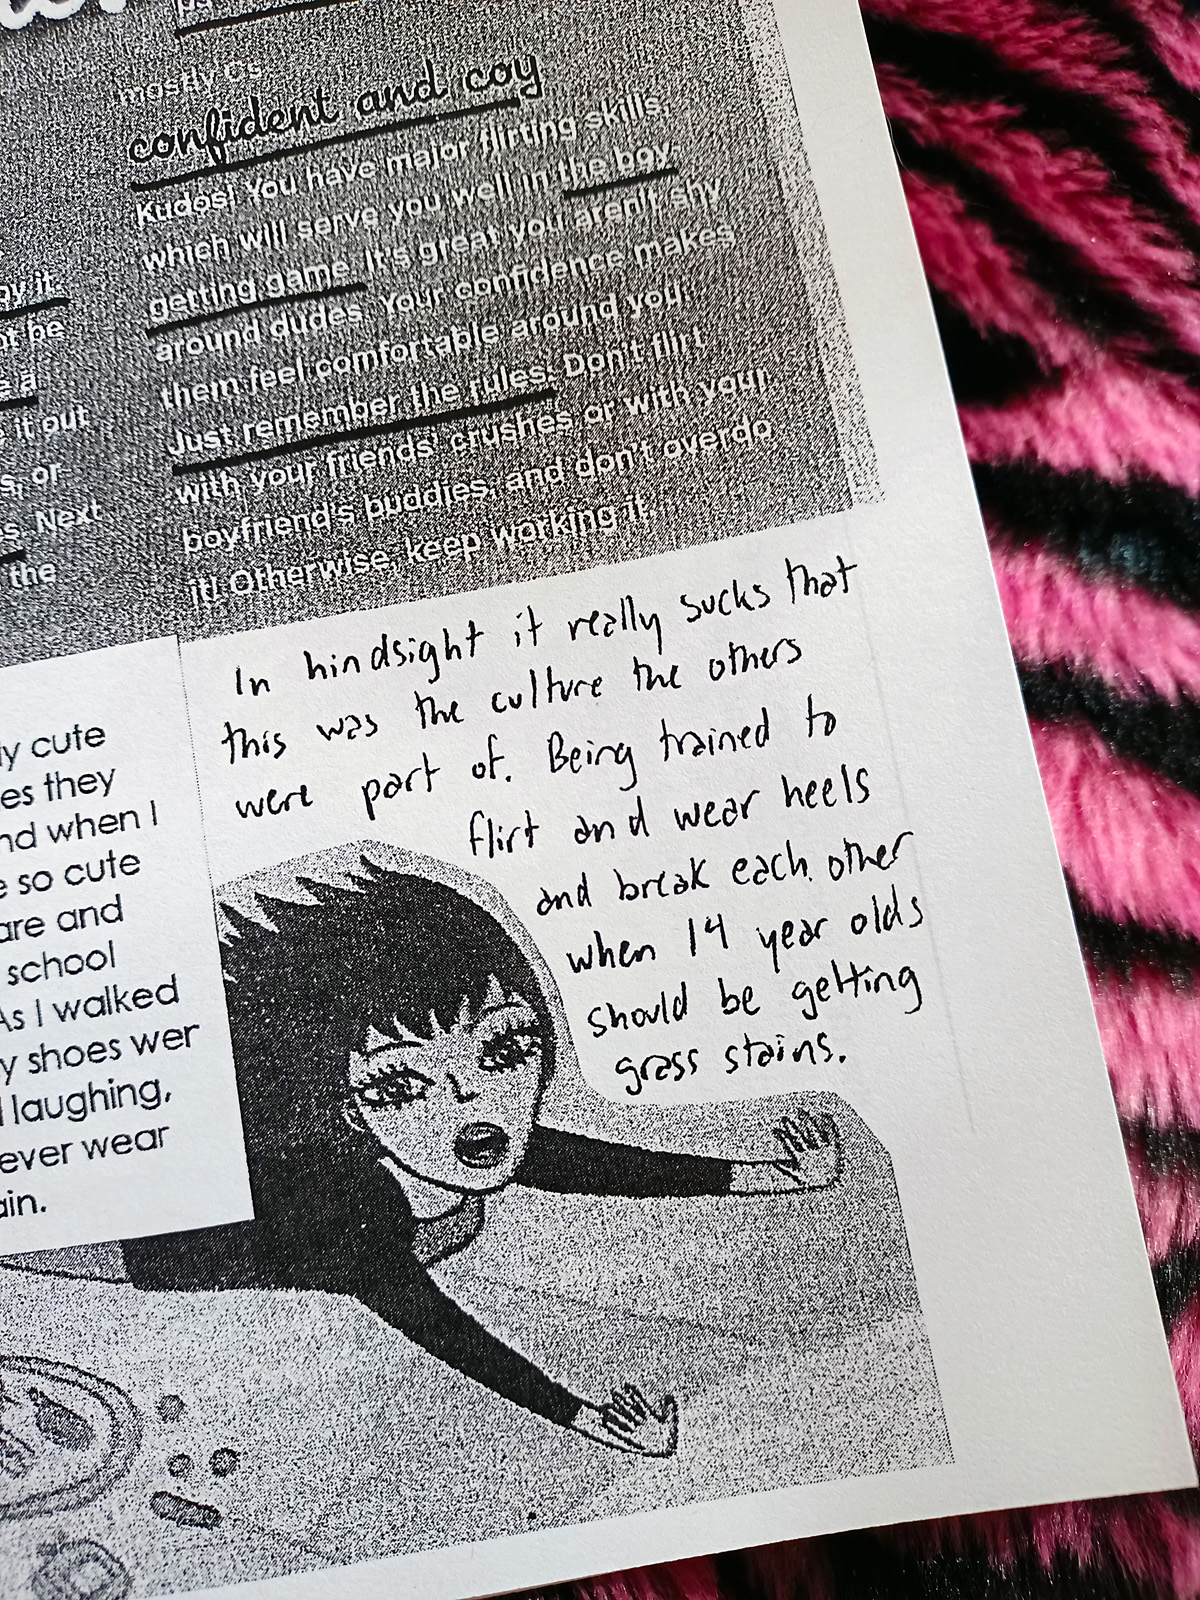 mostly Cs
confident and coy
Kudos! You have major flirting skills,
which will serve you well in the boy-
getting game. It's great you aren't shy
around dudes. Your confidence makes
them feel comfortable around you.
Just remember the rules: Don't flirt
with your friends' crushes or with your
boyfriend's buddies, and don't overdo
it! Otherwise, keep working it.
it.
be
a
it out
or
Next
the
In hindsight it really sucks that
this was the culture the others
were part of. Being trained to
flirt and wear heels
and break each other
when 14 year olds
should be getting
grass stains.
cute
they
when I
so cute
and
school
As I walked
shoes wer
laughing,
wear